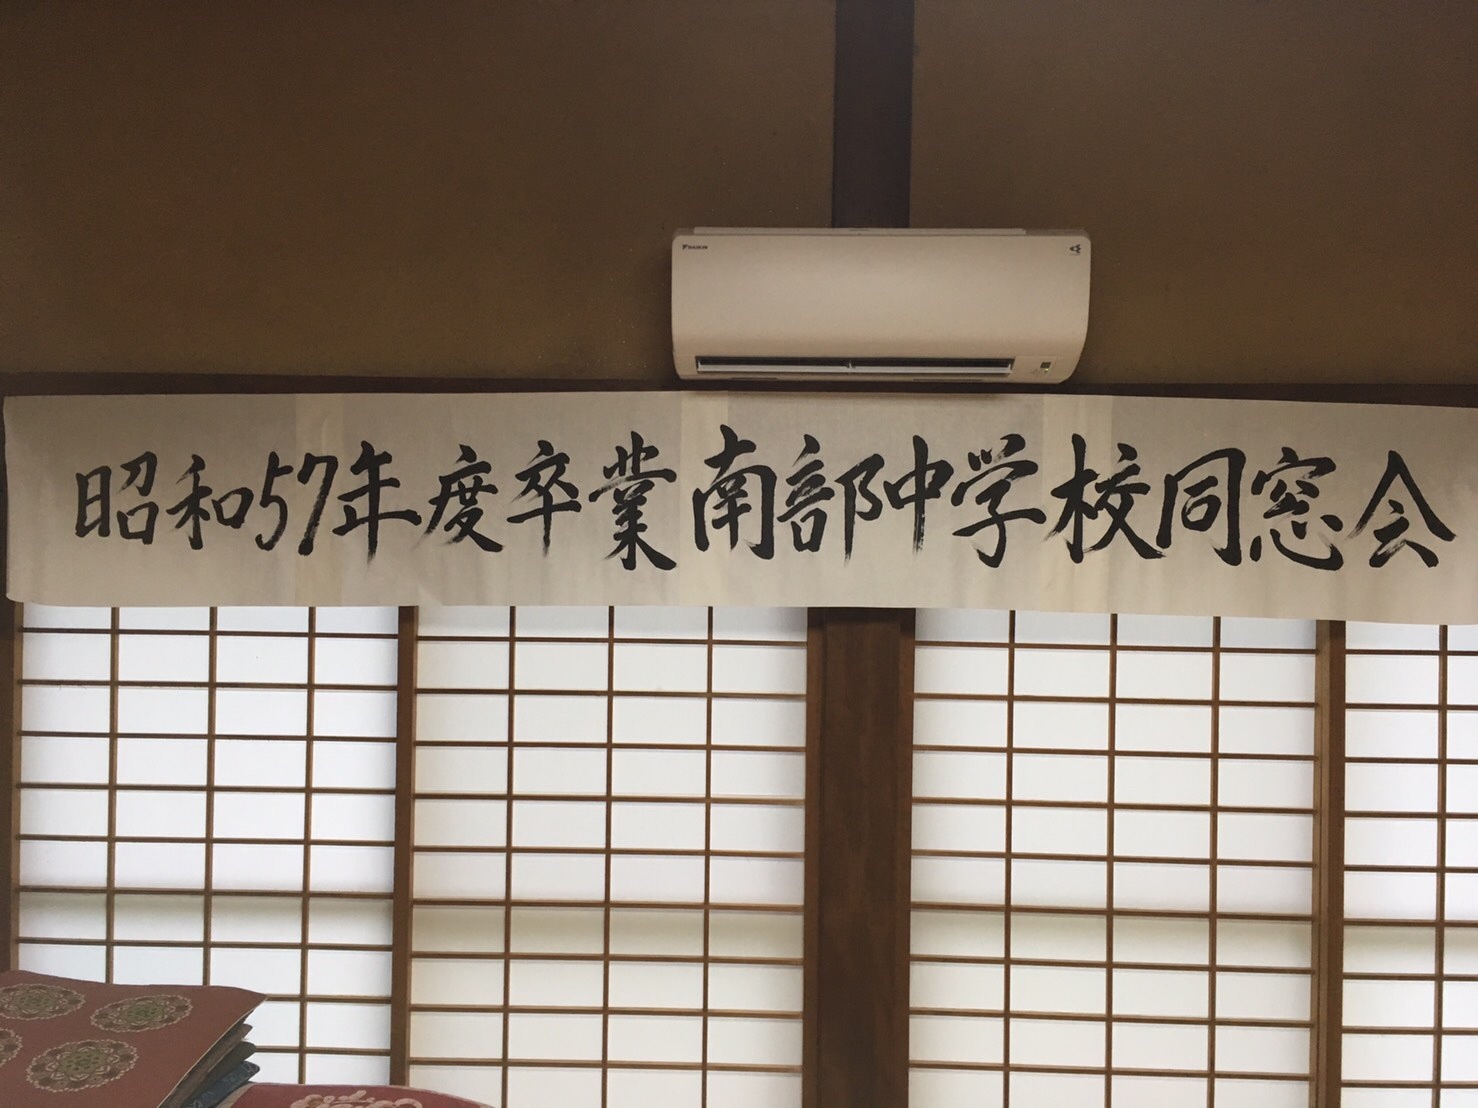 DAIKIN
昭和57年度卒業南部中学校同窓会